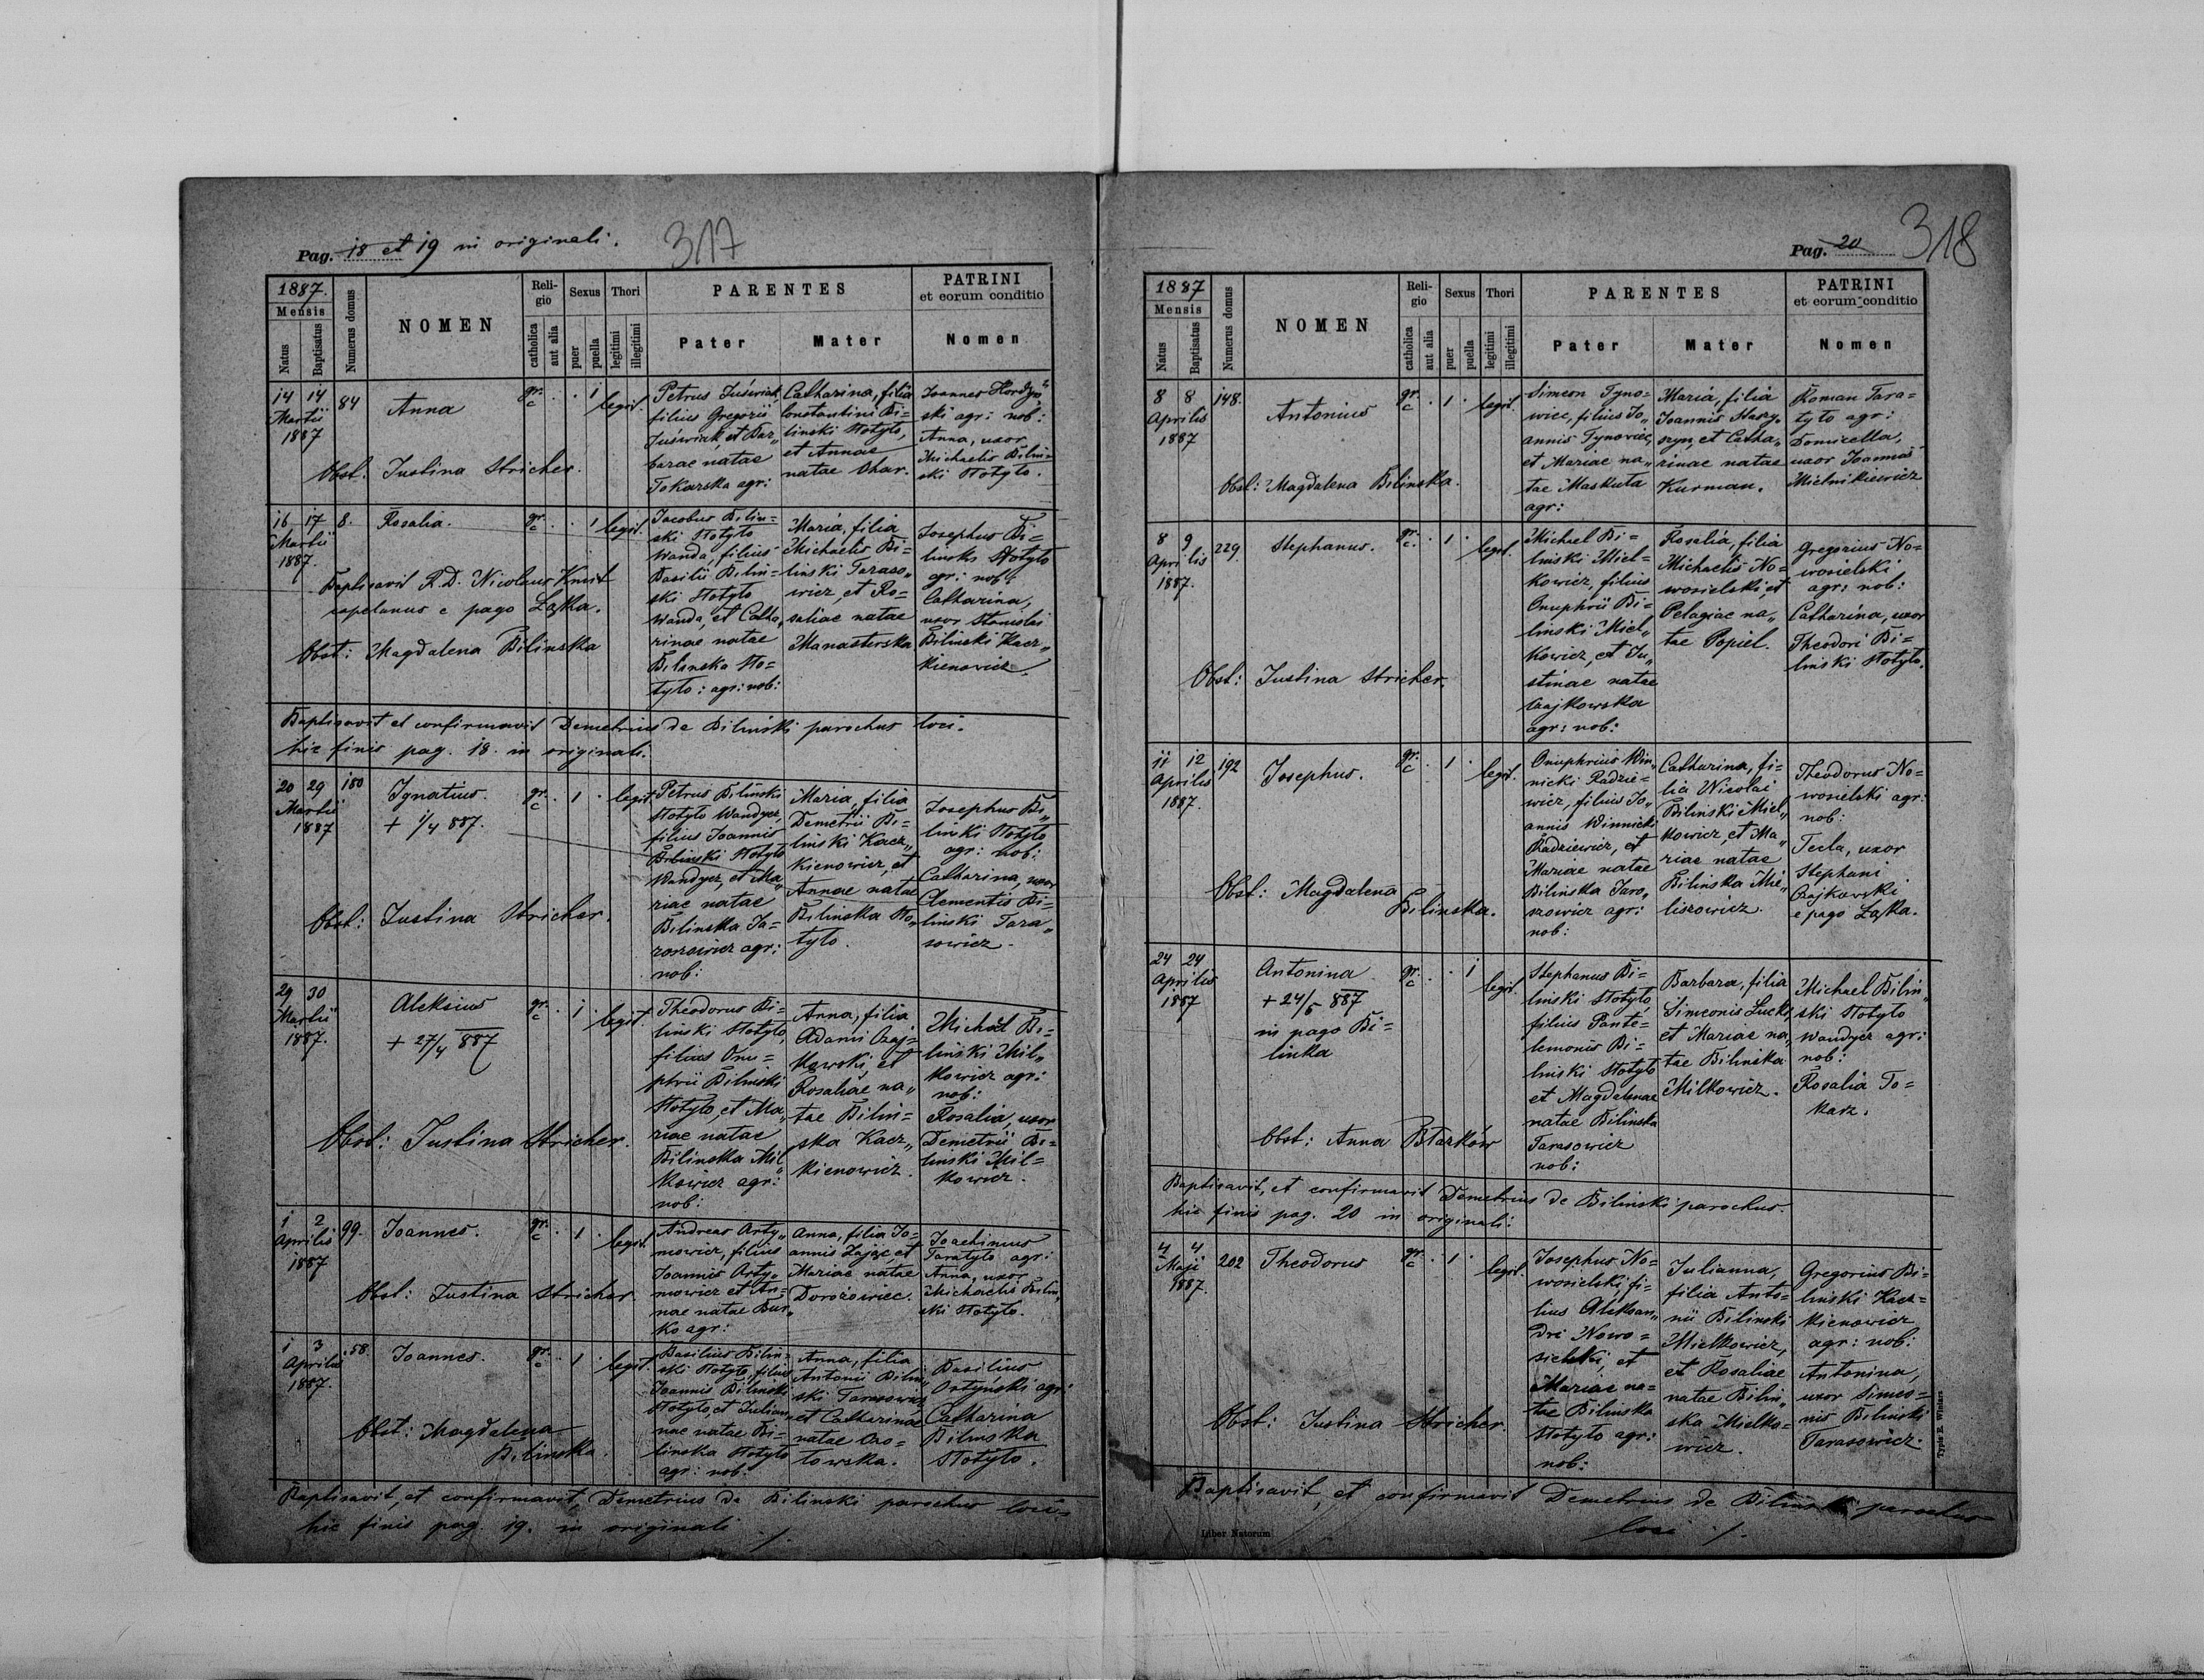 Pag. 18 et 19 in originali.
317
1887.
Mensis
Natus
Baptisatus
Numerus domus
NOMEN
Religio
catholica
aut alia
Sexus
puer
puella
Thori
legitimi
illegitimi
PARENTES
Pater
Mater
PATRINI
et eorum conditio
Nomen
14 14
Martii
1887
84
Anna
gr.
c
1
legit.
Obst: Justina Stricher.
Petrus Juświak,
filius Gregorii
Juświak et Bar„
barae natae
Tokarska agr:
Catharina, filia
Constantini Bi=
linski Stotyło,
et Annae
natae Shar.
Joannes Hordyń„
ski agr: nob:
Anna, uxor
Michaelis Bilin=
ski Stotyło.
16 17
Martii
1887.
8.
Rosalia.
gr.
c
1
legit.
Baptisavit R.D. Nicolaus Kmit
capelanus e pago Łąka.
Obst: Magdalena Bilinska
Jacobus Bilin=
ski Stotyło
Wanda, filius
Basilii Bilin=
ski Stotyło
Wanda, et Catha„
rinae natae
Bilinska Sto=
tyło: agr: nob:
Maria, filia
Michaelis Bi=
linski Taraso„
wicz, et Ro=
saliae natae
Manasterska
Josephus Bi=
linski Stotyło
agr: nob:
Catharina,
uxor Stanislai
Bilinski Kacz„
kienowicz.
Baptisavit et confirmavit Demetrius de Biliński parochus loci.
hic finis pag. 18. in originali.
20 29
Martii
1887
180
Ignatius.
+ 1/4 887.
gr.
c
1
legit.
Obst: Justina Stricher.
Petrus Bilinski
Stotyło Wandycz,
filius Joannis
Bilinski Stotyło
Wandycz, et Ma„
riae natae
Bilinska Ja=
roszowicz agr:
nob:
Maria, filia
Demetrii Bi=
linski Kacz„
kienowicz, et
Annae natae
Bilinska Sto„
tyło.
Josephus Bi„
linski Stotyło
agr: nob:
Catharina, uxor
Clementis Bi=
linski Tara„
sowicz.
29 30
Martii
1887.
Aleksius
+ 27/4 887
gr.
c
1
legit.
Obst: Justina Stricher.
Theodorus Bi=
linski Stotyło,
filius Onu=
phrii Bilinski
Stotyło, et Ma„
riae natae
Bilinska Mil„
kowicz agr:
nob:
Anna, filia
Adami Czaj=
kowski, et
Rosaliae na„
tae Bilin=
ska Kacz„
kienowicz.
Michał Bi=
linski Mil„
kowicz agr:
nob:
Rosalia, uxor
Demetrii Bi=
linski Mil=
kowicz.
1 2
Aprilis
1887
99.
Joannes.
gr.
c
1
legit.
Obst: Justina Stricher.
Andreas Arty„
mowicz, filius
Joannis Arty„
mowicz et An=
nae natae Bur„
ko agr:
Anna, filia Jo=
annis Zając, et
Mariae natae
Dorożowiec.
Joachimus
Taratyło agr:
Anna, uxor
Michaelis Bilin„
ski Stotyło.
1 3
Aprilis
1887.
58.
Joannes.
gr.
c
1
legit.
Obst: Magdalena
Bilinska.
Basilius Bilin=
ski Stotyło, filius
Joannis Bilinski
Stotyło, et Julian„
nae natae Bi=
linska Stotyło
agr: nob:
Anna, filia
Antonii Bilin„
ski Tarasowicz
et Catharinae
natae
Basilius
Ortynski agr:
Catharina
Bilinska
Stotyło.
Baptisavit, et confirmavit, Demetrius de Bilinski parochus loci
hic finis pag. 19. in originali ./.
Pag. 20
318
1887
Mensis
Natus
Baptisatus
Numerus domus
NOMEN
Religio
catholica
aut alia
Sexus
puer
puella
Thori
legitimi
illegitimi
PARENTES
Pater
Mater
PATRINI
et eorum conditio
Nomen
8 8
Aprilis
1887
148.
Antonius
gr.
c
1
legit.
Obst: Magdalena Bilinska.
Simeon Tyno=
wiec, filius Jo„
annis Tynowiec,
et Mariae na„
tae Maskuta
agr:
Maria, filia
Joannis
et Catha„
rinae natae
Kurman.
Roman Tara=
tyło agr:
Domicella,
uxor Joannis
Mielnikiewicz
8 9
Aprilis
1887.
229.
Stephanus.
gr.
c
1
legit.
Obst: Justina Stricher.
Michael Bi=
linski Miel=
kowicz, filius
Onuphrii Bi=
linski Miel„
kowicz, et Ju„
stinae natae
Czajkowska
agr: nob:
Rosalia, filia
Michaelis No=
wosielski, et
Pelagiae na„
tae Popiel.
Gregorius No=
wosielski
agr: nob:
Catharina, uxor
Theodori Bi=
linski Stotyło.
11 12
Aprilis
1887.
192
Josephus.
gr.
c
1
legit.
Obst: Magdalena
Bilinska.
Onuphrius Win„
nicki Radzie=
wicz, filius Jo„
annis Winnicki
Radziewicz, et
Mariae natae
Bilinska Jaro„
szowicz agr:
nob:
Catharina, fi=
lia Nicolai
Bilinski Miel„
kowicz, et Ma„
riae natae
Bilinska Mie„
liszowicz.
Theodorus No=
wosielski agr:
nob:
Tecla, uxor
Stephani
Czajkowski
e pago Łąka.
24 24
Aprilis
1887
Antonina
+ 24/5 887
in pago Bi=
linka
gr.
c
1
legit.
Obst: Anna Błazków
Stephanus Bi=
linski Stotyło,
filius Pante=
lemonis Bi=
linski Stotyło
et Magdalenae
natae Bilinska
Tarasowicz
nob:
Barbara, filia
Simeonis Łucki,
et Mariae na„
tae Bilinska
Milkowicz.
Michael Bilin„
ski Stotyło
Wandycz agr:
nob:
Rosalia To=
karz.
Baptisavit, et confirmavit Demetrius de Bilinski parochus.
hic finis pag. 20 in originali.
4 4.
Maji
1887.
202
Theodorus
gr.
c
1
legit.
Obst: Justina Stricher.
Josephus No=
wosielski, fi=
lius Aleksan„
dri Nowo=
sielski, et
Mariae na=
tae Bilinska
Stotyło agr:
nob:
Julianna,
filia Anto=
nii Bilinski
Mielkowicz,
et Rosaliae
natae Bilin„
ska Mielko=
wicz.
Gregorius Bi=
linski Kacz=
kienowicz
agr: nob:
Antonina,
uxor Simeo=
nis Bilinski
Tarasowicz.
Baptisavit, et confirmavit Demetrius de Bilinski parochus
loci ./.
Liber Natorum
Typis E. Winiarz